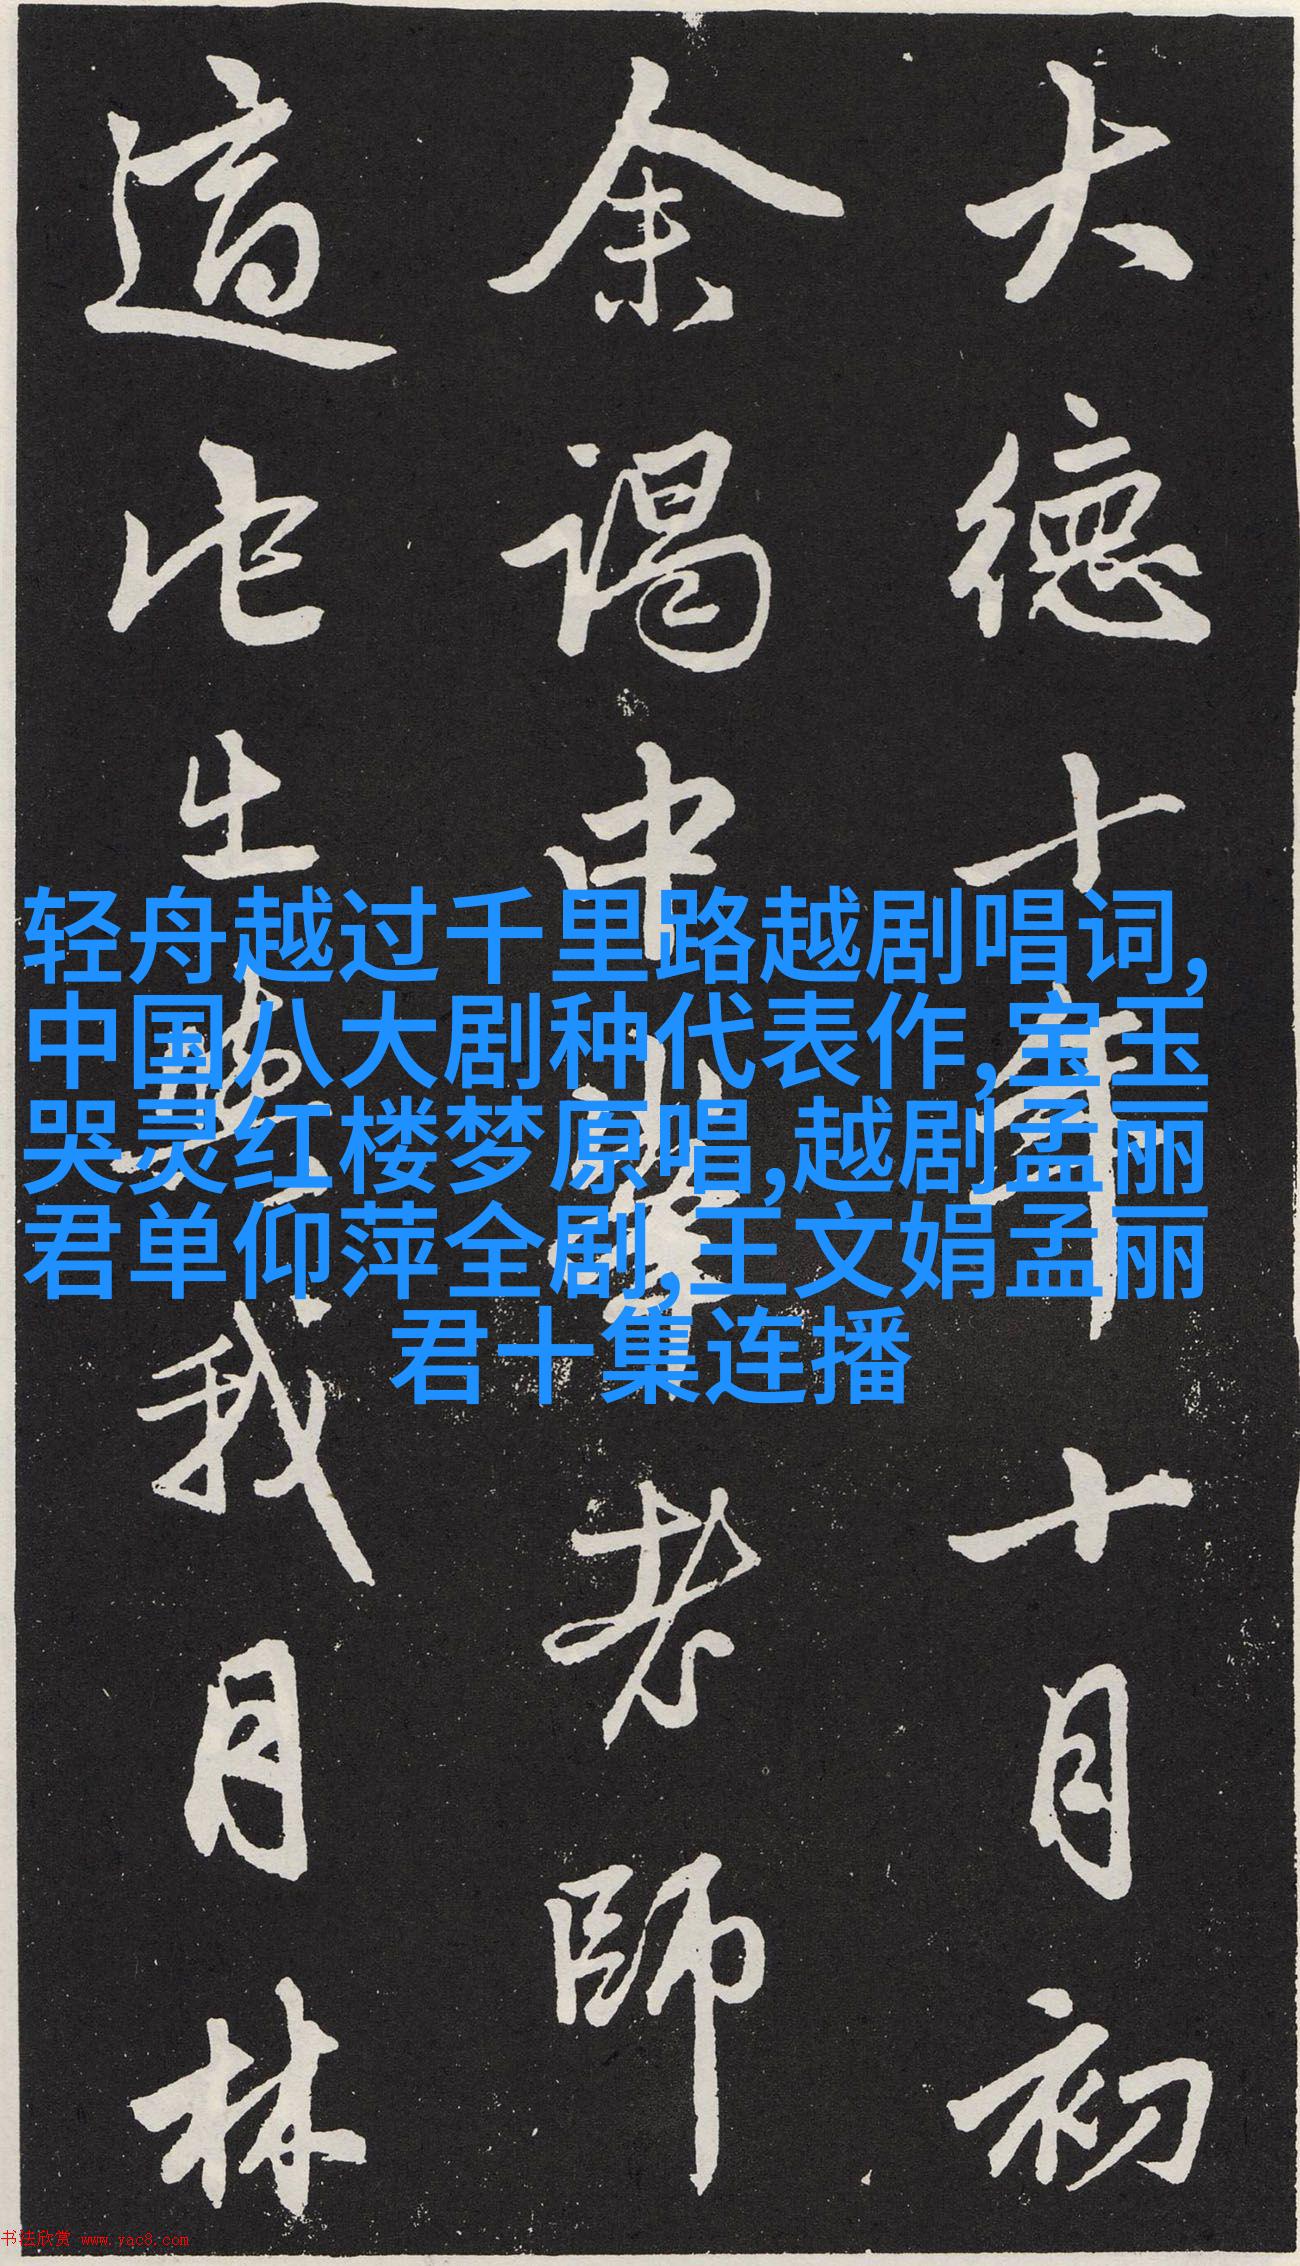 大德十年十月初
余謁中峯老师
適此出然我月林
轻舟越过千里路越剧唱词,
中国八大剧种代表作,宝玉
哭灵红楼梦原唱,越剧孟丽
君单仰萍全剧,王文娟孟丽
君十集连播
书法欣赏 www.yac8.com